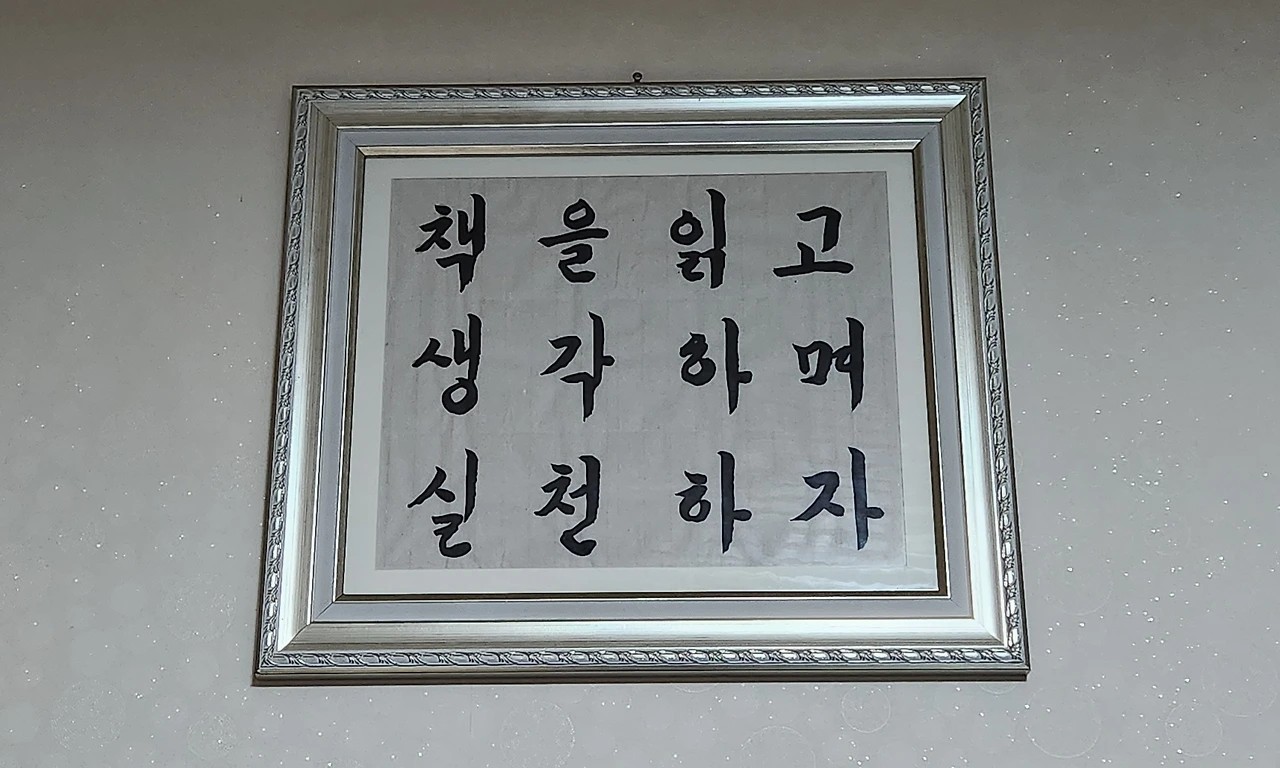 책을 읽고
생각하며
실천하자